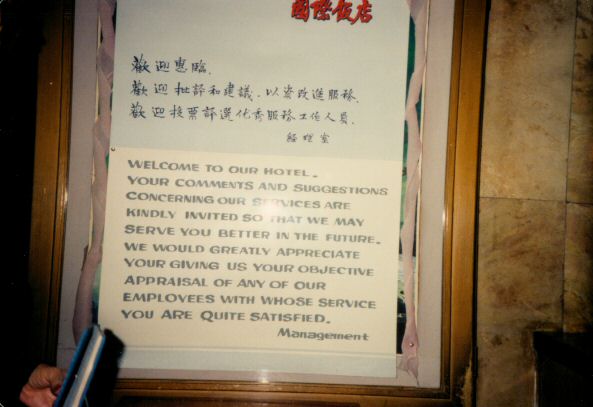 國際飯店
歡迎惠臨.
歡迎批評和建議.以資改進服務.
歡迎投票評選优秀服務工作人員.
經理室
WELCOME TO OUR HOTEL.
YOUR COMMENTS AND SUGGESTIONS
CONCERNING OUR SERVICES ARE
KINDLY INVITED SO THAT WE MAY
SERVE YOU BETTER IN THE FUTURE.
WE WOULD GREATLY APPRECIATE
YOUR GIVING US YOUR OBJECTIVE
APPRAISAL OF ANY OF OUR
EMPLOYEES WITH WHOSE SERVICE
YOU ARE QUITE SATISFIED.
Management